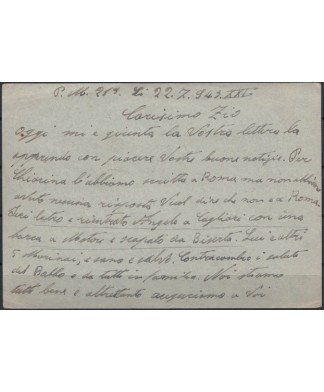 P. M. 204. Li 22.7.943.XXI
Carisimo Zio
Oggi mi e giunta la Vostra lettera la
aprendo con piacere Vostre buone notizie. Per
l'abbiamo scritto a Roma ma non abbiamo
avuto nessuna risposta Vuol dire che non e a Roma
Ieri l'altro e rientrato Angelo a Cagliari con una
barca a Motore e scapato da Biserta. Lui e altri
5 Marinai, e sano e salvo. Contracambio i saluti
del Ballo e da tutti in famiglia. Noi stiamo
tutti bene e altrettanto auguriamo a Voi